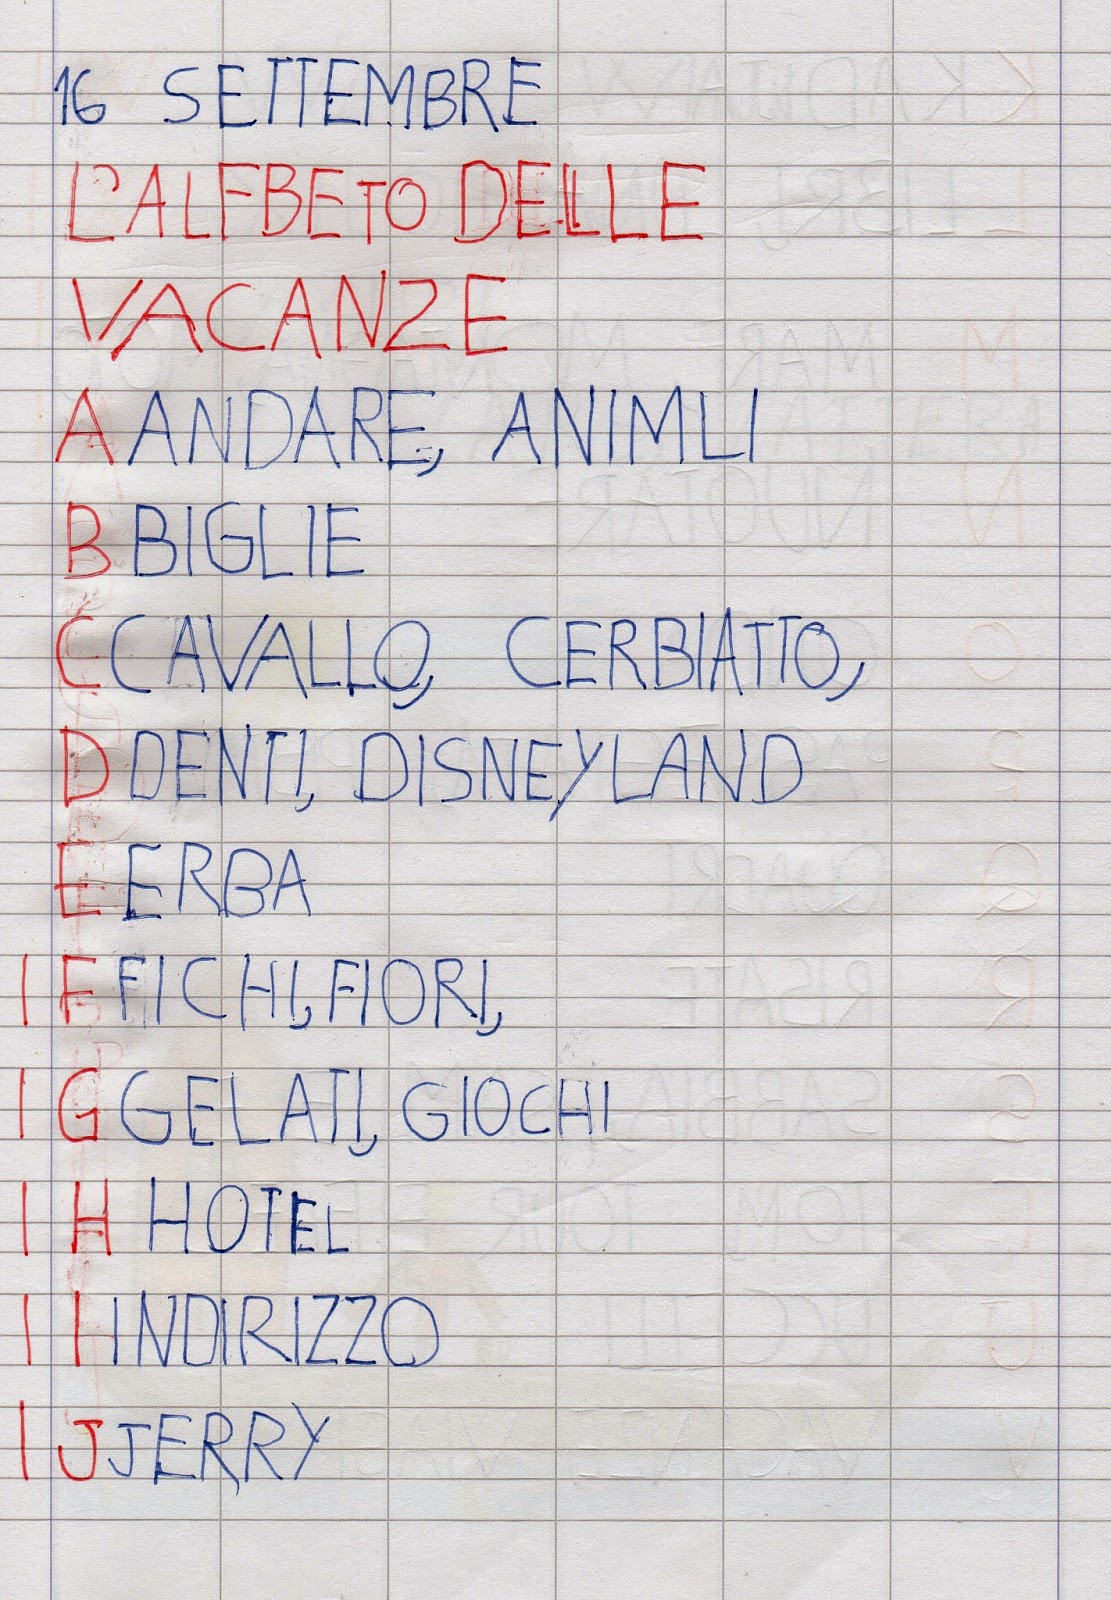 16 SETTEMBRE
L'ALFBETO DELLE
VACANZE
A ANDARE, ANIMLI
B BIGLIE
C CAVALLO, CERBIATTO,
D DENTI, DISNEYLAND
E ERBA
I F FICHI, FIORI,
I G GELATI, GIOCHI
I H HOTEL
I I INDIRIZZO
I J JERRY